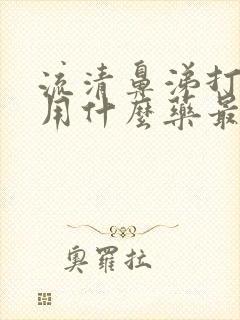 流清鼻涕打
用什麼藥最
奧羅拉